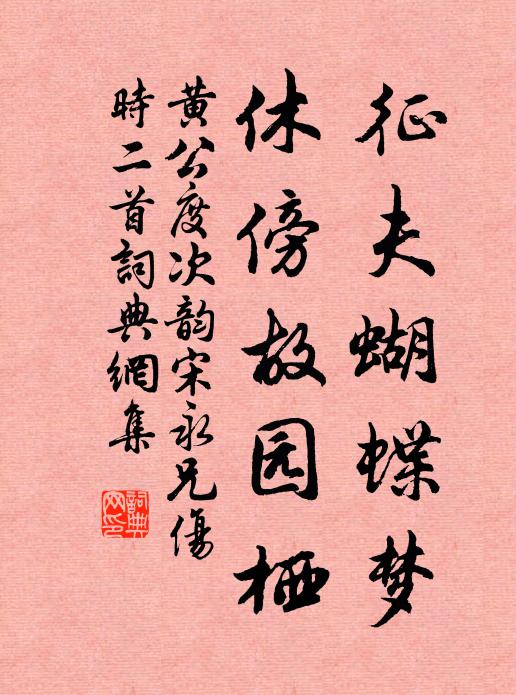 征夫蝴蝶梦
休傍故园栖
黄公度次韵宋永兄傷
時二首詞典網集
詞典
网印